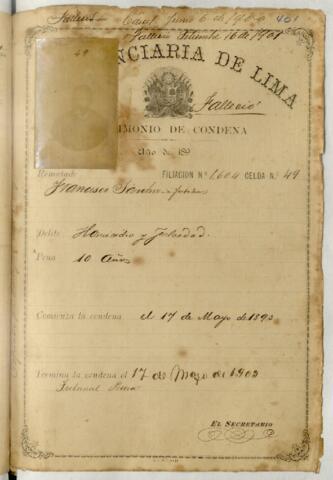 Junio 6 de 1900 401
Falleció Setiembre 16 de 1901
49
NCIARIA DE LIMA
Falleció
IMONIO DE CONDENA
Año de 189
Rematado FILIACION Nº 1604 CELDA N. 49
Francisco
Delito Homicidio y
Pena 10 Años
Comienza la condena el 17 de Mayo de 1893
Termina la condena el 17 de Mayo de 1903
Tribunal
EL SECRETARIO